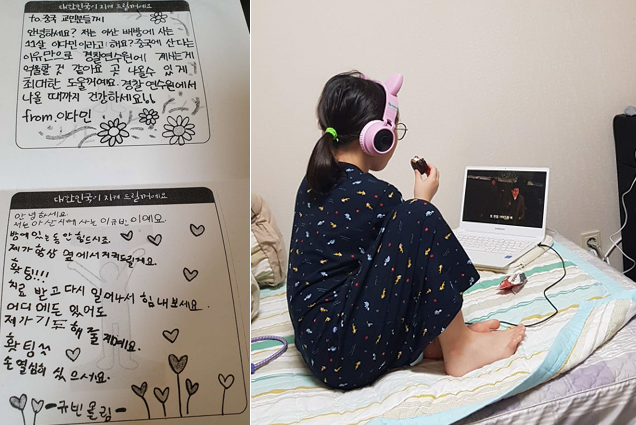 대한민국이 지켜 드릴게요
to. 중국 교민분들께
안녕하세요? 저는 아산 배방에 사는
11살 이다민이라고 해요? 중국에 산다는
이유만으로 경찰연수원에 계시는게
억울할 것 같아요 곧 나올수 있게
최대한 도울께요. 경찰 연수원에서
나올 때까지 건강하세요
from. 이다민
대한민국이 지켜 드릴게요
안녕하세요.
저는 아산시에 사는 이규빈이예요.
방에 있는 동안 힘드시죠.
제가 항상 옆에서 지켜드릴게요.
화팅!!!
치료 받고 다시 일어나서 힘내 보세요.
어디에든 있어도
제가 기도 해 줄꺼예요.
화팅
손 열심히 씻으세요.
-규빈 올림-